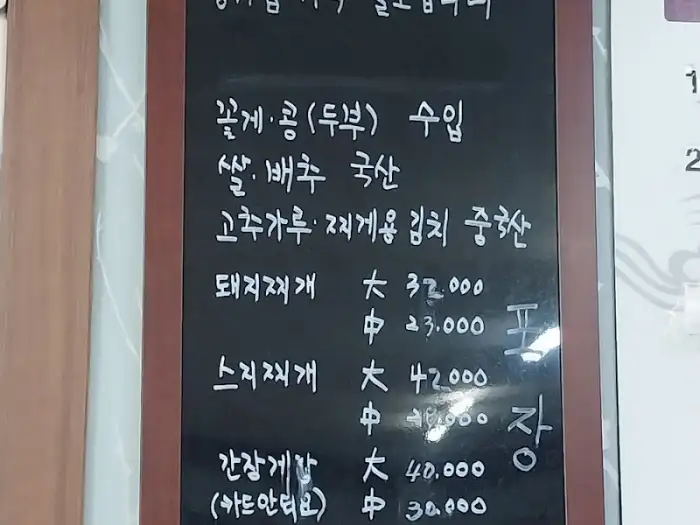 꽃게·콩(두부) 수입
쌀·배추 국산
고추가루·찌게용김치 중국산
돼지찌개 大 32.000
中 23.000
스지찌개 大 42.000
中
간장게장 大 40.000
(카드안되요) 中 30.000
포장
1
2